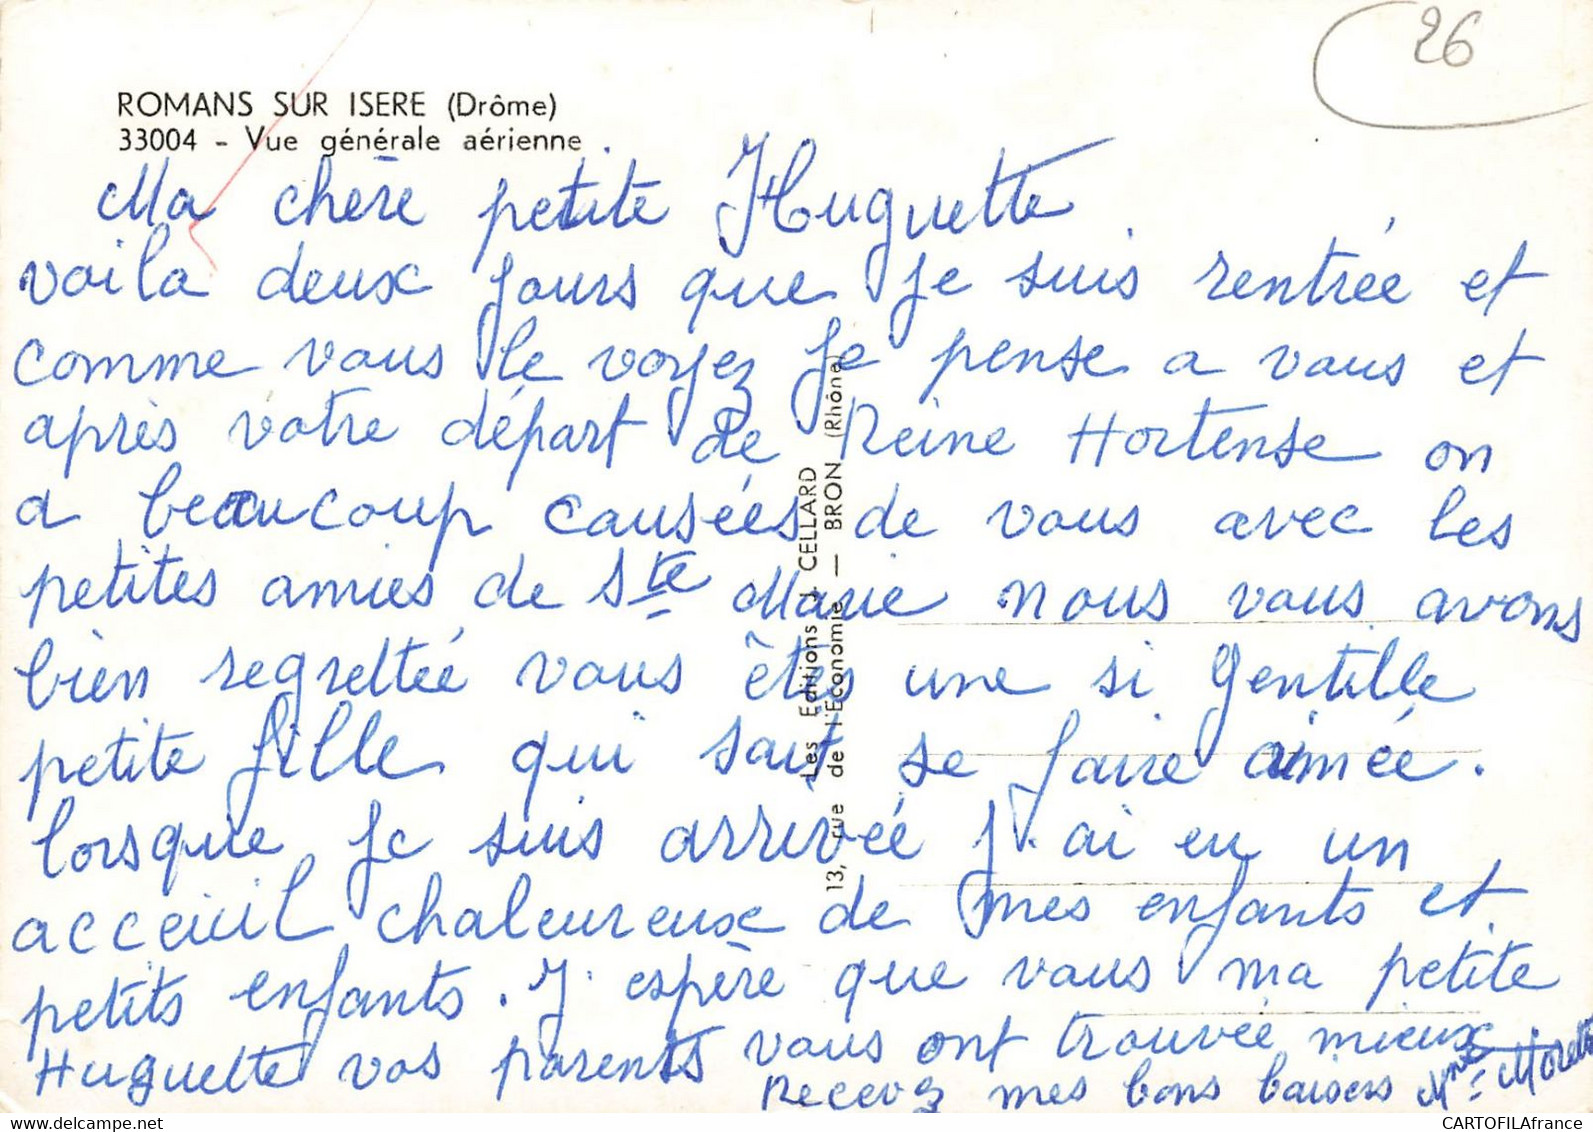 26
ROMANS SUR ISERE (Drôme)
33004 - Vue générale aérienne
Ma chère petite Huguette
voila deux jours que je suis rentrée et
comme vous le voyez je pense a vous et
après votre départ de Reine Hortense on
a beaucoup causées de vous avec les
petites amies de Ste Marie nous vous avons
bien regrettée vous êtes une si gentille
petite fille qui sait se faire aimée.
lorsque je suis arrivée j'ai eu un
acceuil chaleureux de mes enfants et
petits enfants. J'espère que vous ma petite
Huguette vos parents vous ont trouvée mieux
Recevez mes bons baisers Mme
Les Editions J. CELLARD
13, rue de l'Economie — BRON (Rhône)
CARTOFILAfrance